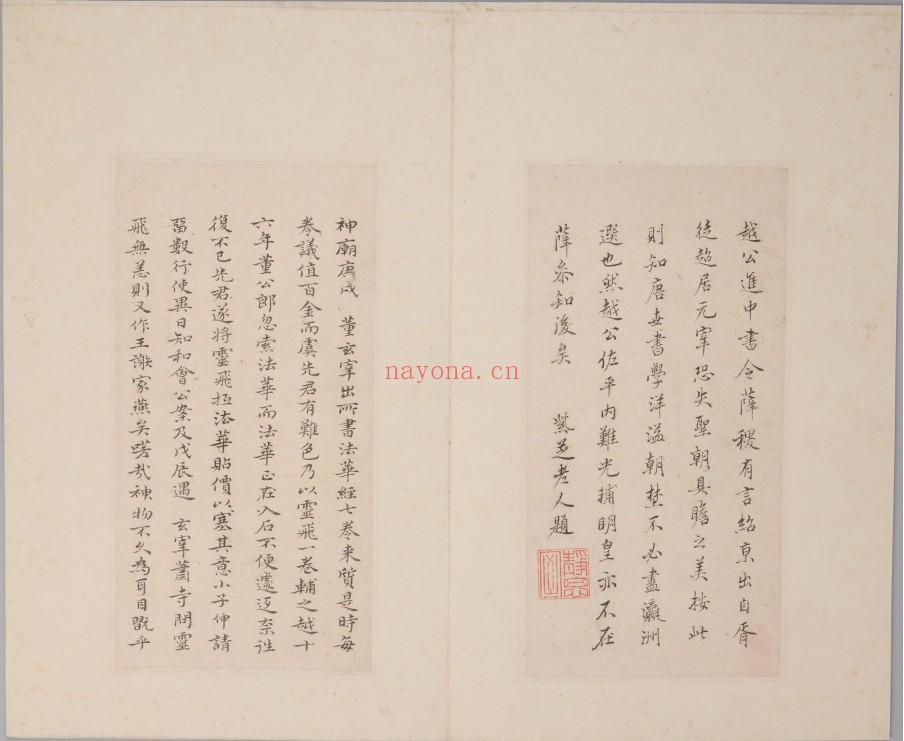 越公進中書令薛稷有言紹京出自胥
徒超居元宰恐失聖朝具瞻之美按此
則知唐世書學洋溢朝埜不必盡瀛洲
選也然越公佐平內難光捕明皇亦不在
薛參知後矣　紫芝老人題
神廟庚戌　董玄宰出所書法華經七卷来質是時每
卷議值百金而虞先君有難色乃以靈飛一卷輔之越十
六年董公郎忽索法華而法華正在入石不便遽返奈往
復不已先君遂將靈飛抵法華貼價以塞其意小子伸請
留數行使異日知和會公案及戊辰遇　玄宰蕭寺問靈
飛無恙則又作王謝家燕矣嗟哉神物不久為耳目翫乎
nayona.cn